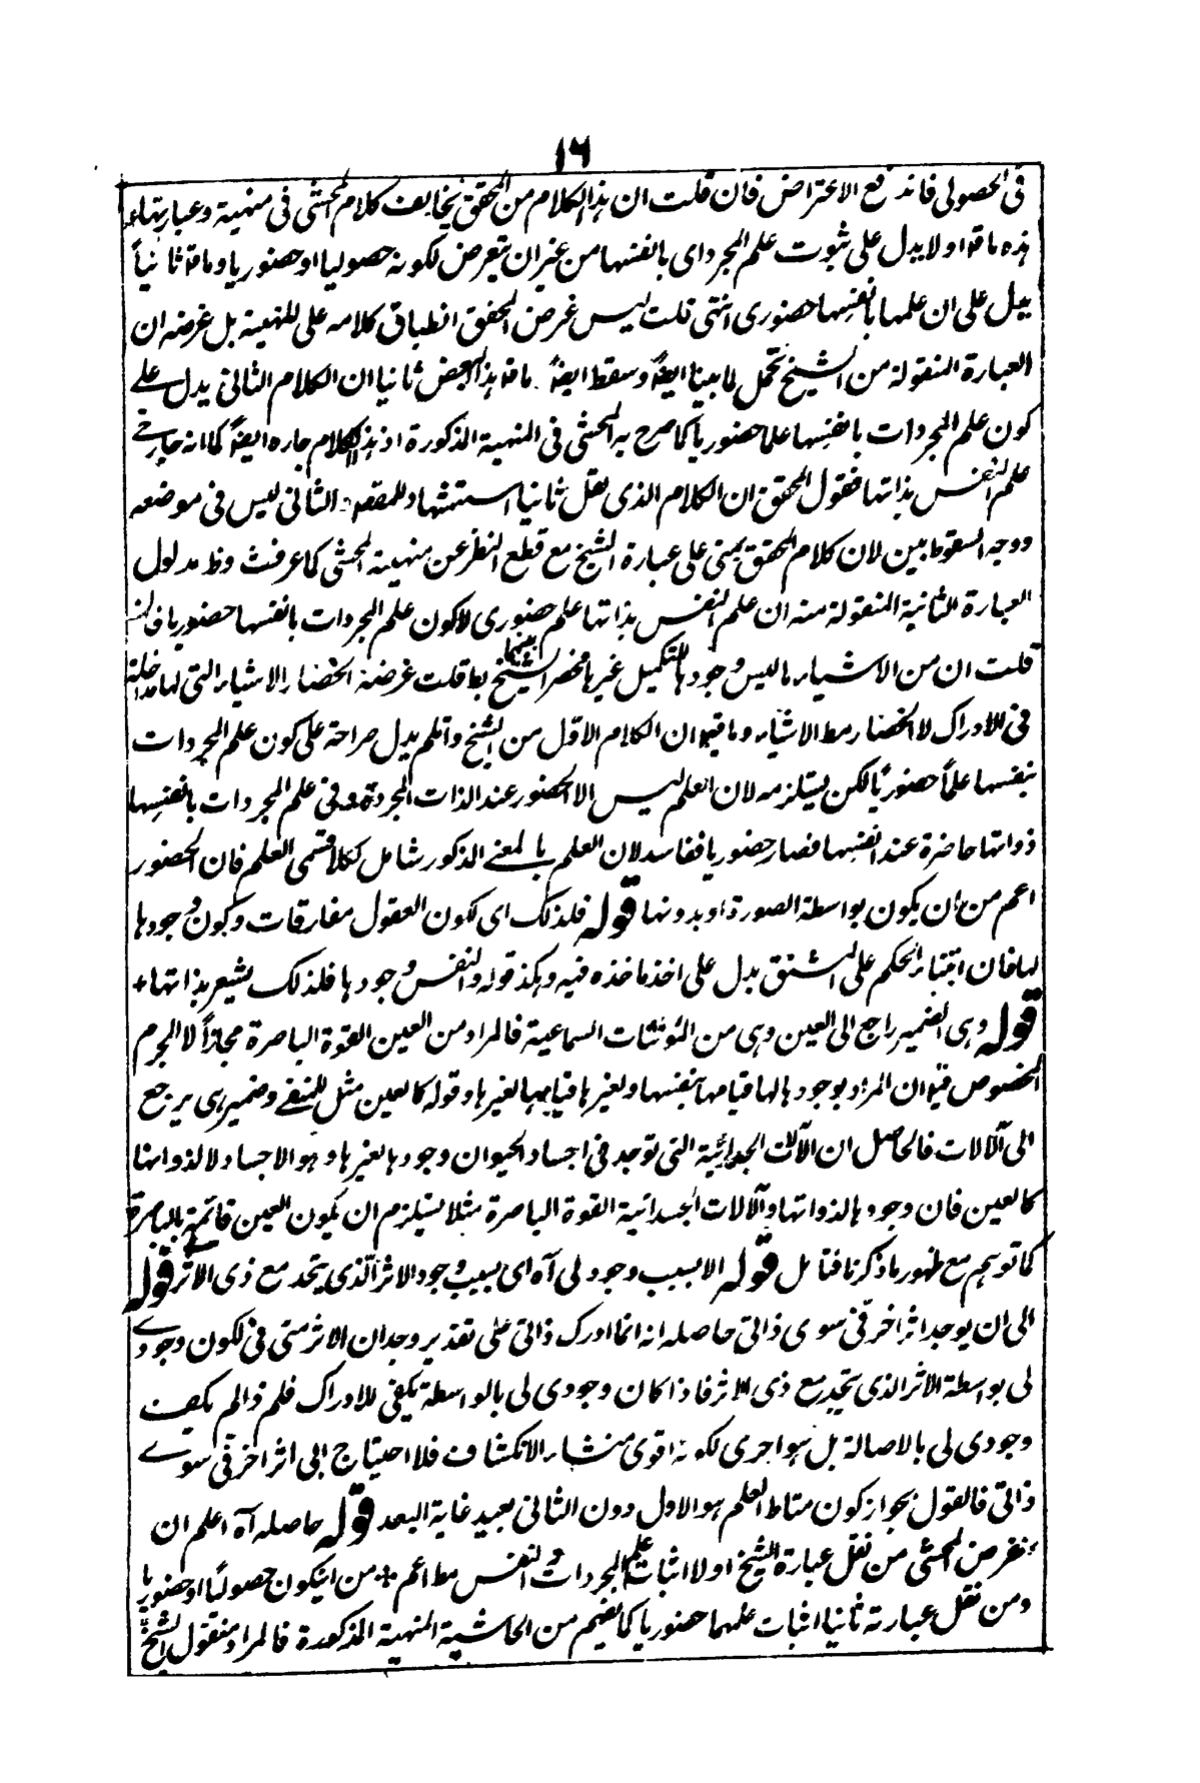 ١٦
فى الحصولى فاندفع الاعتراض فان قلت ان هذا الكلام من المحقق يخالف كلام المحشى فى منهيته وعبارتها
هذه ما قة اولا يدل على ثبوت علم المجرد اى بانفسها من غير ان يتعرض لكونه حصوليا او حضوريا وما قة ثانياً
يدل على ان علمها بانفسها حضورى انتهى قلت ليس غرض المحقق انطباق كلامه على المنهية بل غرضه ان
العبارة المنقولة من الشيخ تحمل لما بينا ايضاً وسقط ايضاً ما قة هذا البعض ثانيا ان الكلام الثانى يدل على
كون علم المجردات بانفسها علما حضورياً كما صرح به المحشى فى المنهية المذكورة اذ هذا الكلام جار ه ايضاً كما انه جار فى
علم النفس بذاتها فقول المحقق ان الكلام الذى نقل ثانيا استشهاد للمقصد الثانى ليس فى موضعه
ووجه السقوط بين لان كلام المحقق مبنى على عبارة الشيخ مع قطع النظر عن منهية المحشى كما عرفت وظ مدلول
العبارة الثانية المنقولة منه ان علم النفس بذاتها علم حضورى لا كون علم المجردات بانفسها حضوريا فان
قلت ان من الاشياء ما ليس وجودها لتكميل غيرها فحصر الشيخ بينهما بط قلت غرضه انحصار الاشياء التى لها مداخلة
فى الادراك لا انحصار مط الاشياء وما قيل ان الكلام الاول من الشيخ وان لم يدل صراحة على كون علم المجردات
بنفسها علماً حضورياً لكن يستلزمه لان العلم ليس الا الحضور عند الذات المجردة وفى علم المجردات بانفسها
ذواتها حاضرة عند انفسها فصار حضوريا ففاسد لان العلم بالمعنى المذكور شامل لكلا قسمى العلم فان الحضور
اعم من ان يكون بواسطة الصورة او بدونها قوله فلذلك اى لكون العقول مفارقات وكون وجودها
لها فان ابتناء الحكم على المشتق يدل على اخذ ماخذه فيه وهكذا قوله والنفس وجودها فلذلك يشعر بذاتها +
قوله وهى الضمير راجع الى العين وهى من المؤنثات السماعية فالمراد من العين القوة الباصرة مجازاً لا الجرم
المخصوص قيل ان المراد بوجودها لها قيامها بنفسها ولغيرها قيامها لغيرها وقوله كالعين مثل للمنفى وضمير هى يرجع
الى آلالات فالحاصل ان الآلات الجسدانية التى توجد فى اجساد الحيوان وجودها لغيرها وهو الاجساد لا لذواتها
كالعين فان وجودها لذواتها وآلالات الجسدانية القوة الباصرة مثلا يستلزم ان يكون العين قائمة بالباصرة
كما توهم مع ظهور ما ذكرنا فتامل قوله الا بسبب وجود لى آه اى بسبب وجود الاثر الذى يتحد مع ذى الاثر قوله
الى ان يوجد اثر اخر فى سوى ذاتى حاصله انه انما ادرك ذاتى على تقدير وجدان الاثر منى فى لكون وجودى
لى بواسطة الاثر الذى يتحد مع ذى الاثر فاذا كان وجودى لى بالواسطة يكفى للادراك فلم ذا لم يكف
وجودى لى بالاصالة بل هو احرى لكونه اقوى منشاء الانكشاف فلا احتياج الى اثر اخر فى سوى
ذاتى فالقول بجواز كون مناط العلم هو الاول دون الثانى بعيد غاية البعد قوله حاصله آه اعلم ان
غرض المحشى من نقل عبارة الشيخ اولا اثبات علم المجردات والنفس مط اعم + من ان يكون حصولياً او حضوريا
ومن نقل عبارته ثانيا اثبات علمهما حضوريا كما يفهم من الحاشية المنهية المذكورة فالمراد بمنقول الشيخ